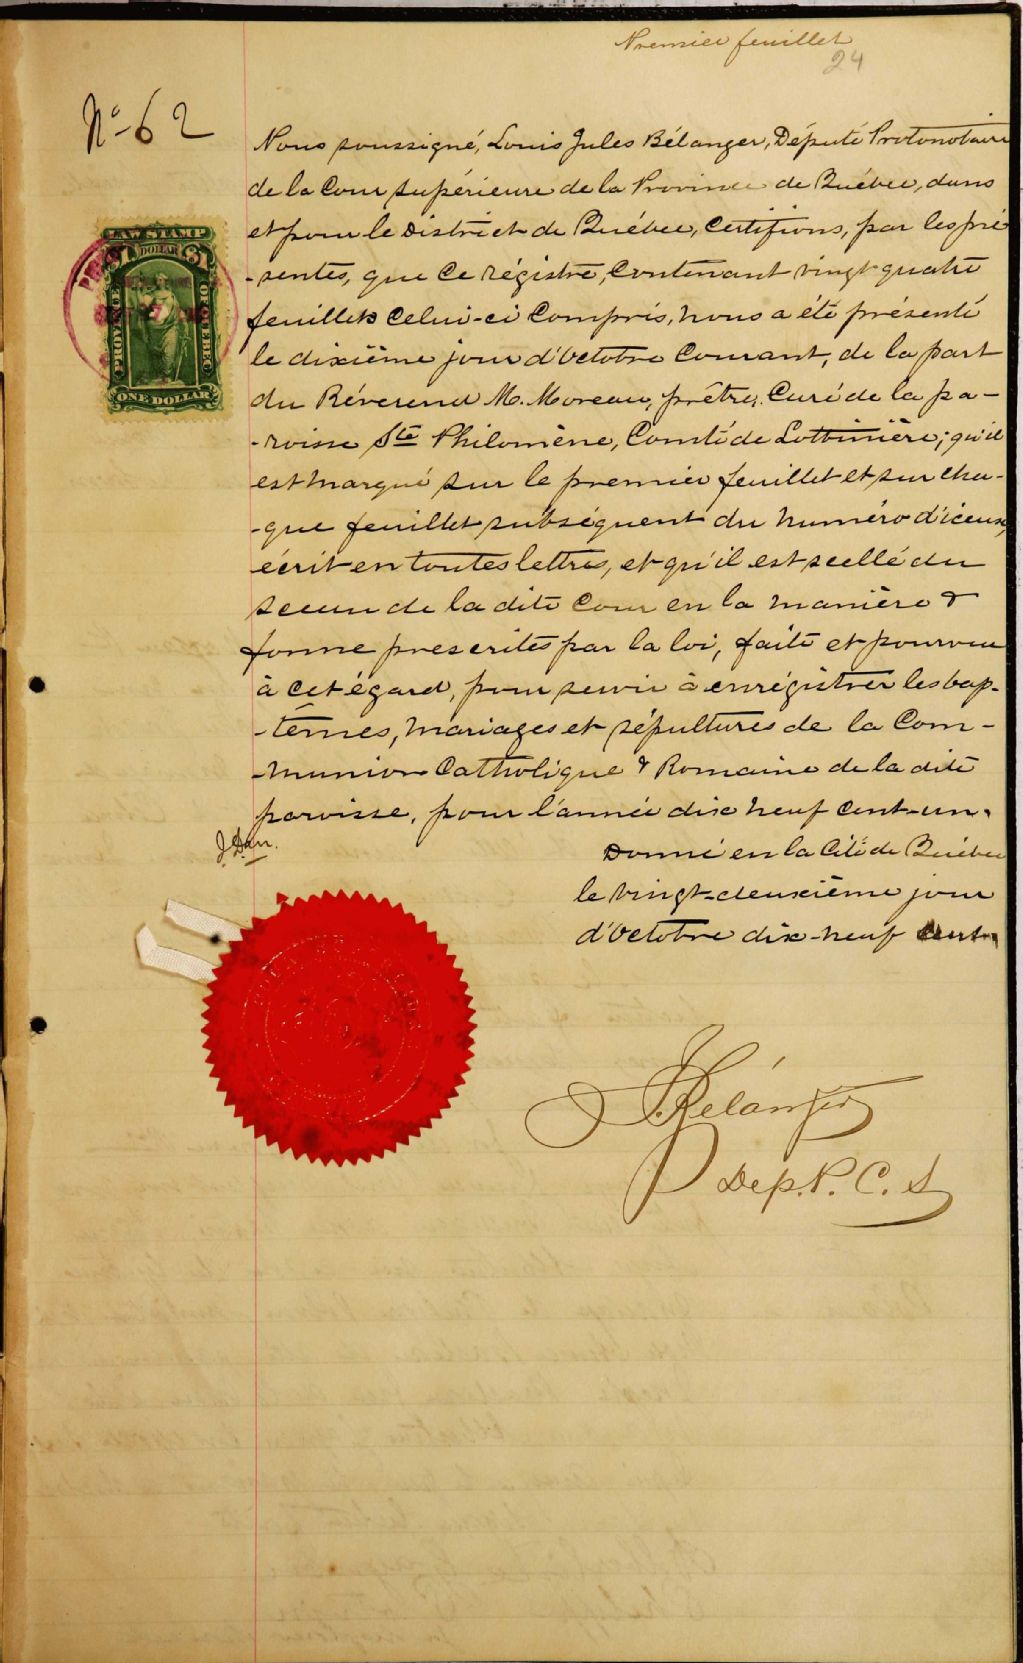 Premier feuillet
24
No 62
Nous soussigné, Louis Jules Bélanger, Député Protonotaire
de la Cour Supérieure de la Province de Québec, dans
et pour le District de Québec, Certifions, par les pré
LAW STAMP
DOLLAR
PROVINCE OF QUEBEC
ONE DOLLAR
-sentes, que ce régistre, Contenant vingt quatre
feuillets celui-ci Compris, nous a été présenté
le dixième jour d'Octobre Courant, de la part
du Révérend M. Moreau, prêtre, Curé de la pa-
-roisse Ste Philomène, Comté de Lotbinière; qu'il
est marqué sur le premier feuillet et sur cha-
-que feuillet subséquent du numéro d'iceux,
écrit en toutes lettres, et qu'il est scellé du
sceau de la dite Cour en la manière &
forme prescrites par la loi, faite et pourvue
à cet égard, pour servir à enrégistrer les bap-
-têmes, mariages et sépultures de la Com-
-munion Catholique & Romaine de la dite
paroisse, pour l'année dix neuf cent-un.
Donné en la Cité de Québec
le vingt-deuxième jour
d'Octobre dix-neuf cent
Bélanger
Dep. P. C. S